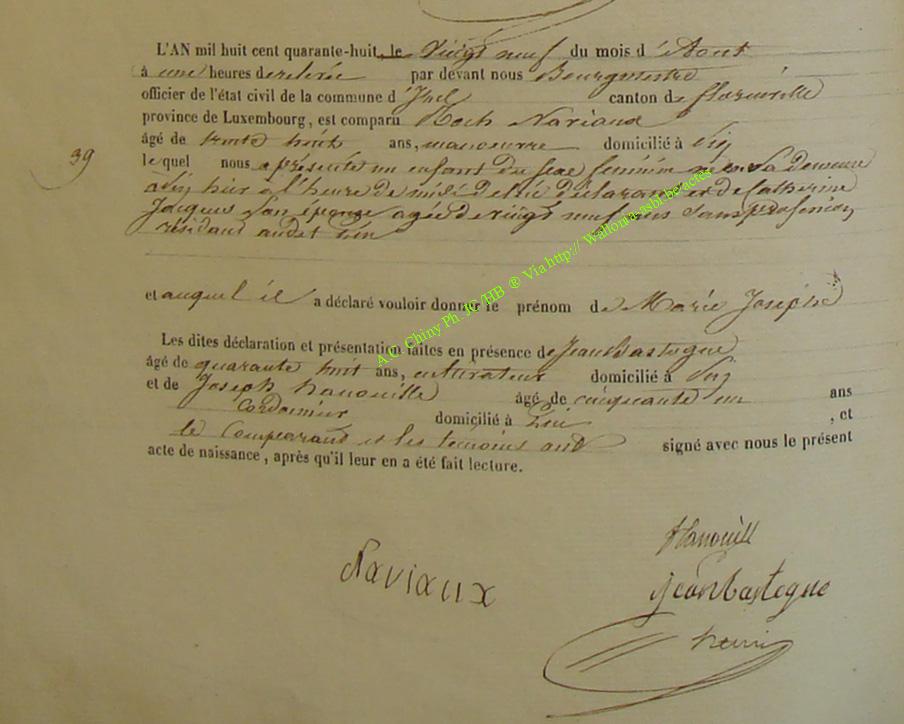 L'AN mil huit cent quarante-huit, le vingt neuf du mois d'Aout
à une heures de relevée par devant nous Bourgmestre
officier de l'état civil de la commune d'Izel canton de florenville
province de Luxembourg, est comparu Roch Naviaux
âgé de trente huit ans, manoeuvre domicilié à
39
lequel nous a présenté un enfant du sexe féminin né en sa demeure
hier à l'heure de midi de lui déclarant et de Catherine
Jacques son épouse agée de vingt neuf ans sans profession
résidant audit
et auquel il a déclaré vouloir donner le prénom de Marie Josephe
Les dites déclaration et présentation faites en présence de Jean Bastogne
âgé de quarante huit ans, cultivateur domicilié à
et de Joseph hanouille âgé de cinquante un ans
Cordonnier domicilié à , et
le Comparant et les témoins ont signé avec nous le présent
acte de naissance, après qu'il leur en a été fait lecture.
A.C. Chiny Ph JC HB ® Via http:// Wallonia-asbl-be/actes
Hanouill
Naviaux
Jean Bastogne